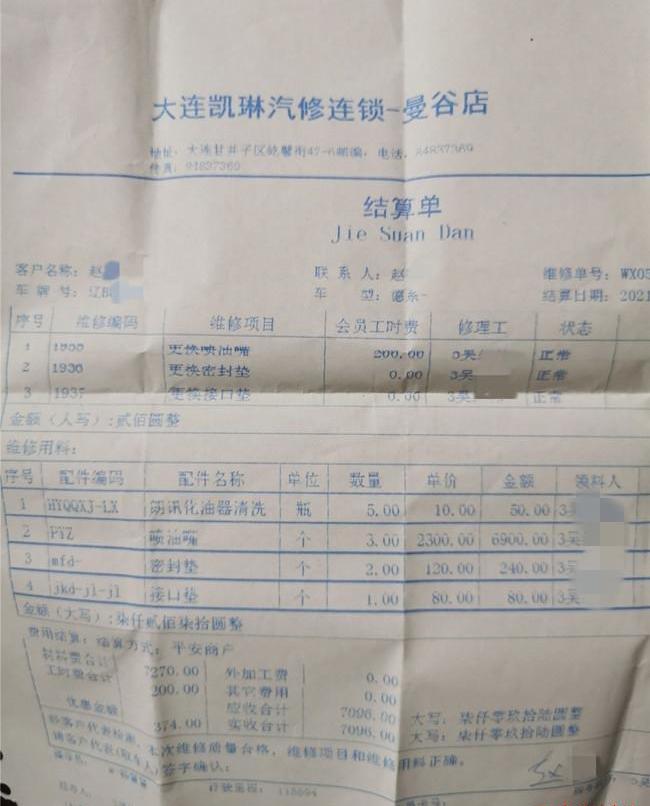 大连凯琳汽修连锁-曼谷店
地址: 大连甘井子区乾馨街47-6邮编, 电话, 84837369
传真: 84837369
结算单
Jie Suan Dan
客户名称: 赵 联系人: 赵 维修单号: WX05
车牌号: 辽B 车型: 德系- 结算日期: 2021
序号 维修编码 维修项目 会员工时费 修理工 状态
1 1935 更换喷油嘴 200.00 3吴 正常
2 1936 更换密封垫 0.00 3吴 正常
3 1937 更换接口垫 0.00 3吴 正常
金额(大写):贰佰圆整
维修用料:
序号 配件编码 配件名称 单位 数量 单价 金额 领料人
1 HYQQXJ-LX 朗讯化油器清洗 瓶 5.00 10.00 50.00 3吴
2 PYZ 喷油嘴 个 3.00 2300.00 6900.00 3吴
3 mfd- 密封垫 个 2.00 120.00 240.00 3吴
4 jkd-jl-jl 接口垫 个 1.00 80.00 80.00 3吴
金额(大写):柒仟贰佰柒拾圆整
费用结算: 结算方式: 平安商户
材料费合计 7270.00 外加工费 0.00
工时费合计 200.00 其它费用 0.00
应收合计 7096.00 大写: 柒仟零玖拾陆圆整
优惠金额 374.00 实收合计 7096.00 大写: 柒仟零玖拾陆圆整
经客户代表检验, 本次维修质量合格, 维修项目和维修用料正确。
请客户代表(取车人)签字确认:
行驶里程: 118694